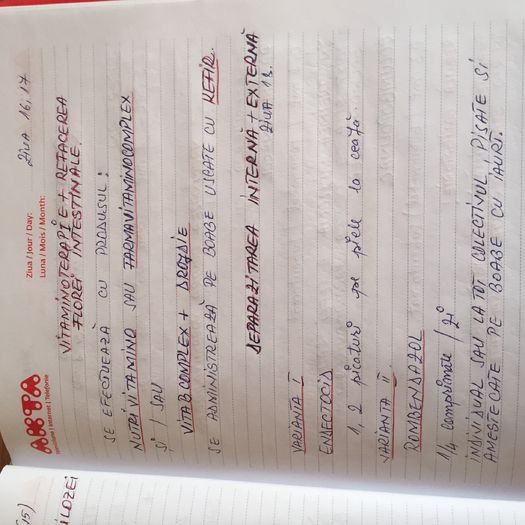 AKTA
Televiziune | Internet | Telefonie
Ziua / Jour / Day:
ZIUA 16, 17
Luna / Mois / Month:
VITAMINOTERAPIE + REFACEREA
FLOREI INTESTINALE.
SE EFECTUEAZĂ CU PRODUSUL:
NUTRIVITAMINO SAU FARMAVITAMINOCOMPLEX
ȘI / SAU
VITABCOMPLEX + DROJDIE
SE ADMINISTREAZĂ PE BOABE USCATE CU KEFIR.
DEPARAZITAREA INTERNĂ + EXTERNĂ
ZIUA 18.
VARIANTA I
ENDECTOCID
1, 2 picături pe piele la ceafă.
VARIANTA II.
ROMBENDAZOL
1/4 comprimate / zi
INDIVIDUAL SAU LA TOT COLECTIVUL, PISATE ȘI
AMESTECATE PE BOABE CU IAURT.
15)
ILOZEI